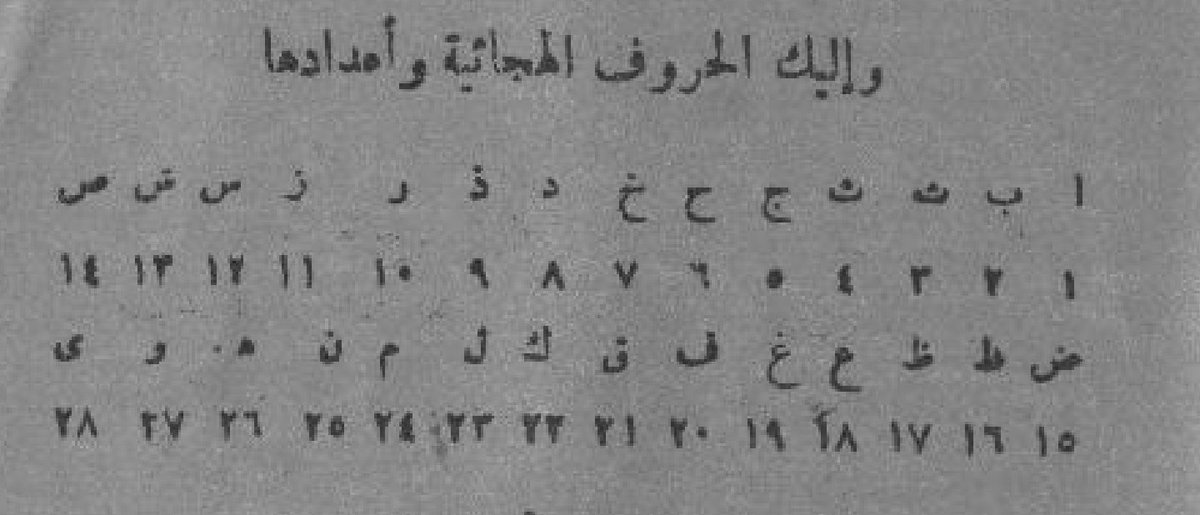 وإليك الحروف الهجائية وأعدادها
ا ب ت ث ج ح خ د ذ ر ز س ش ص
١ ٢ ٣ ٤ ٥ ٦ ٧ ٨ ٩ ١٠ ١١ ١٢ ١٣ ١٤
ض ط ظ ع غ ف ق ك ل م ن ه و ى
١٥ ١٦ ١٧ ١٨ ١٩ ٢٠ ٢١ ٢٢ ٢٣ ٢٤ ٢٥ ٢٦ ٢٧ ٢٨